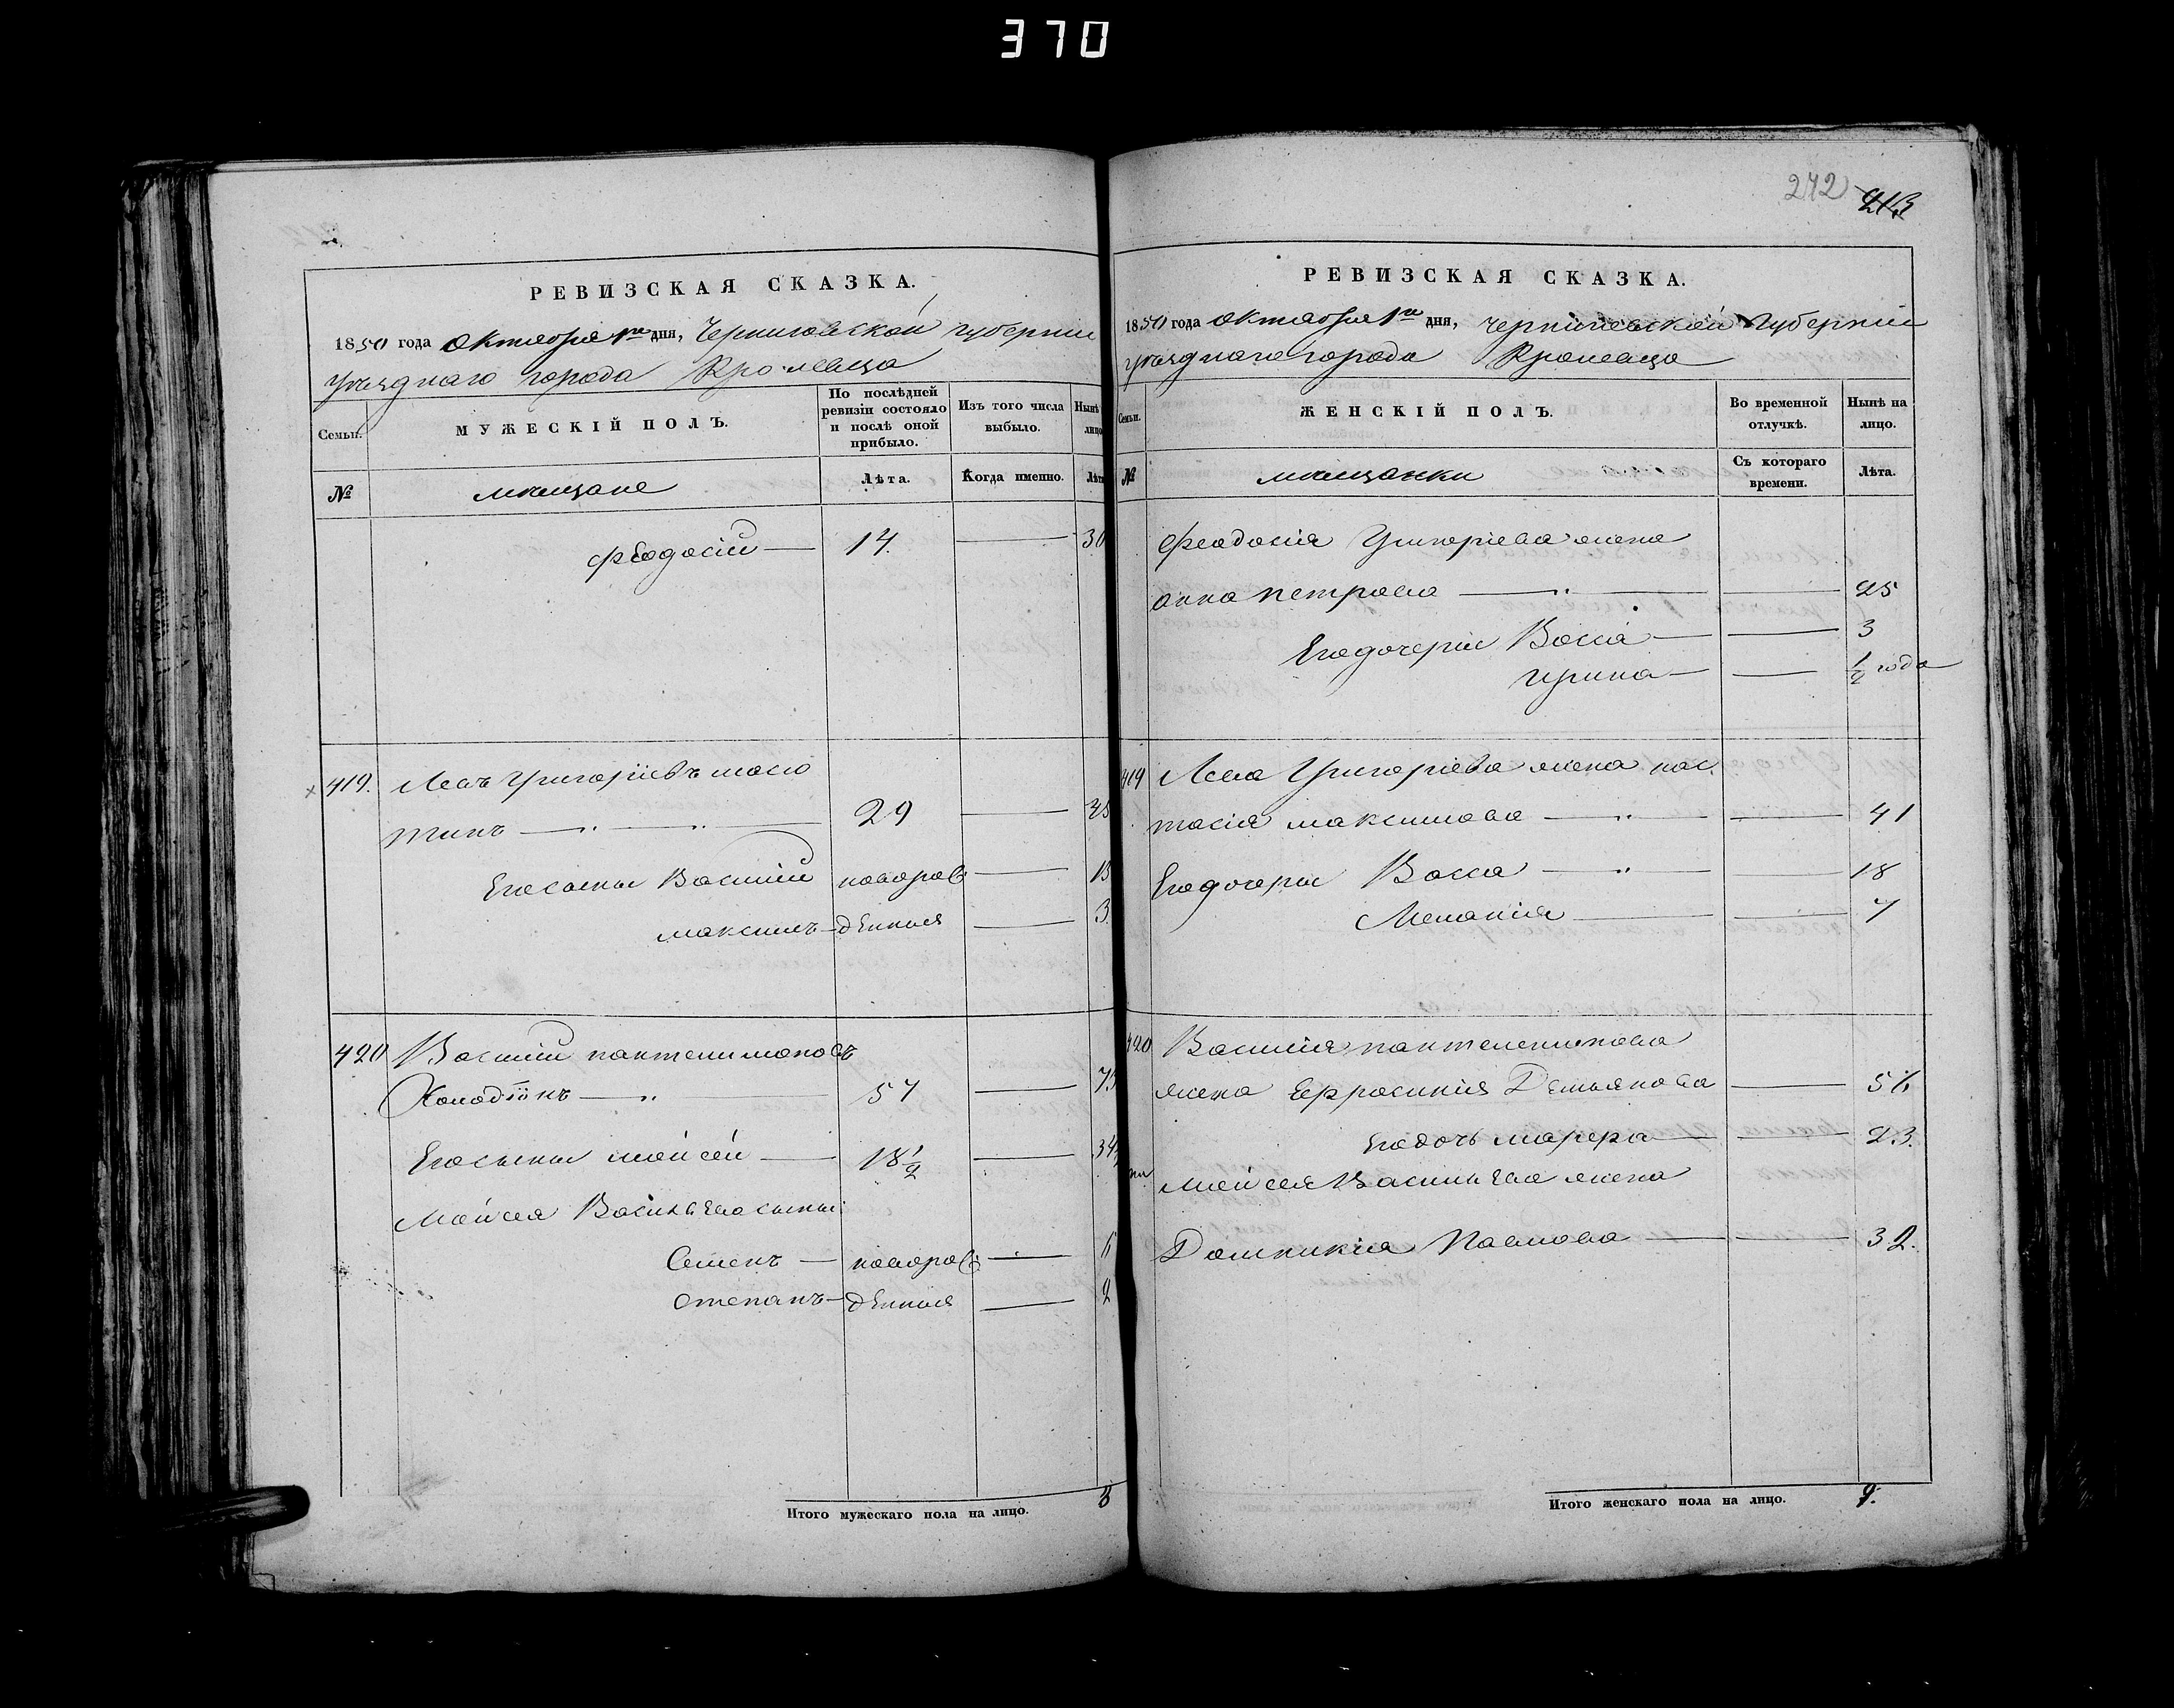 370
РЕВИЗСКАЯ СКАЗКА.
1850 года октября 1го дня, Черниговской губернии
уѣзднаго города Кролевца
Семьи.
МУЖЕСКІЙ ПОЛЪ.
По послѣдней ревизіи состояло и послѣ оной прибыло.
Изъ того числа выбыло.
Нынѣ лицо
№
мещане
Лѣта.
Когда именно.
Лѣта
Феодосій — 14. — 30
419. Леонъ Григоріевъ
29 — 45
Его сыны Василій новорож — 13
максимъ — денныя — 3
420 Василій пантелимоновъ
57 — 73
Его сынъ Мойсей — 18 1/2 — 34
Мойсея Васильева сыны
Семенъ — новорож — 6
Степанъ — денныя — 2
Итого мужескаго пола на лицо. 8
272 213
РЕВИЗСКАЯ СКАЗКА.
1850 года октября 1го дня, Черниговской Губерніи
уѣзднаго города Кролевца
Семьи.
ЖЕНСКІЙ ПОЛЪ.
Во временной отлучкѣ.
Нынѣ на лицо.
№
мещанки
Съ котораго времени.
Лѣта.
Феодосія Григоріева жена
анна петрова — 25
Его дочери Васса — 3
Ирина — 1/2 года
419 Леона Григоріева жена нас
тасія максимова — 41
Его дочери Васса — 18
Меланія — 7
420 Василія пантелемонова
жена Ефросинія Демьянова — 56
Его дочь марфа — 23.
Мойсея Васильева жена
Домникія Павлова — 32.
Итого женскаго пола на лицо. 9.